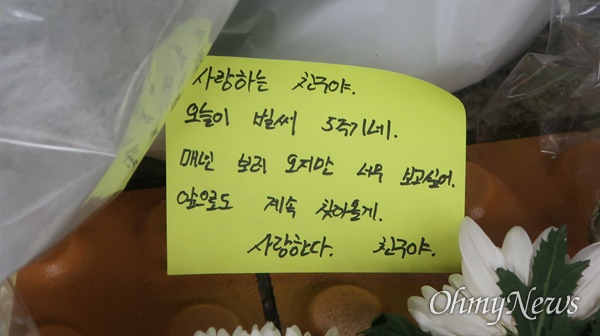 사랑하는 친구야.
오늘이 벌써 5주기네.
매년 보러 오지만 너무 보고싶어.
앞으로도 계속 찾아올게.
사랑한다. 친구야.
OhmyNews